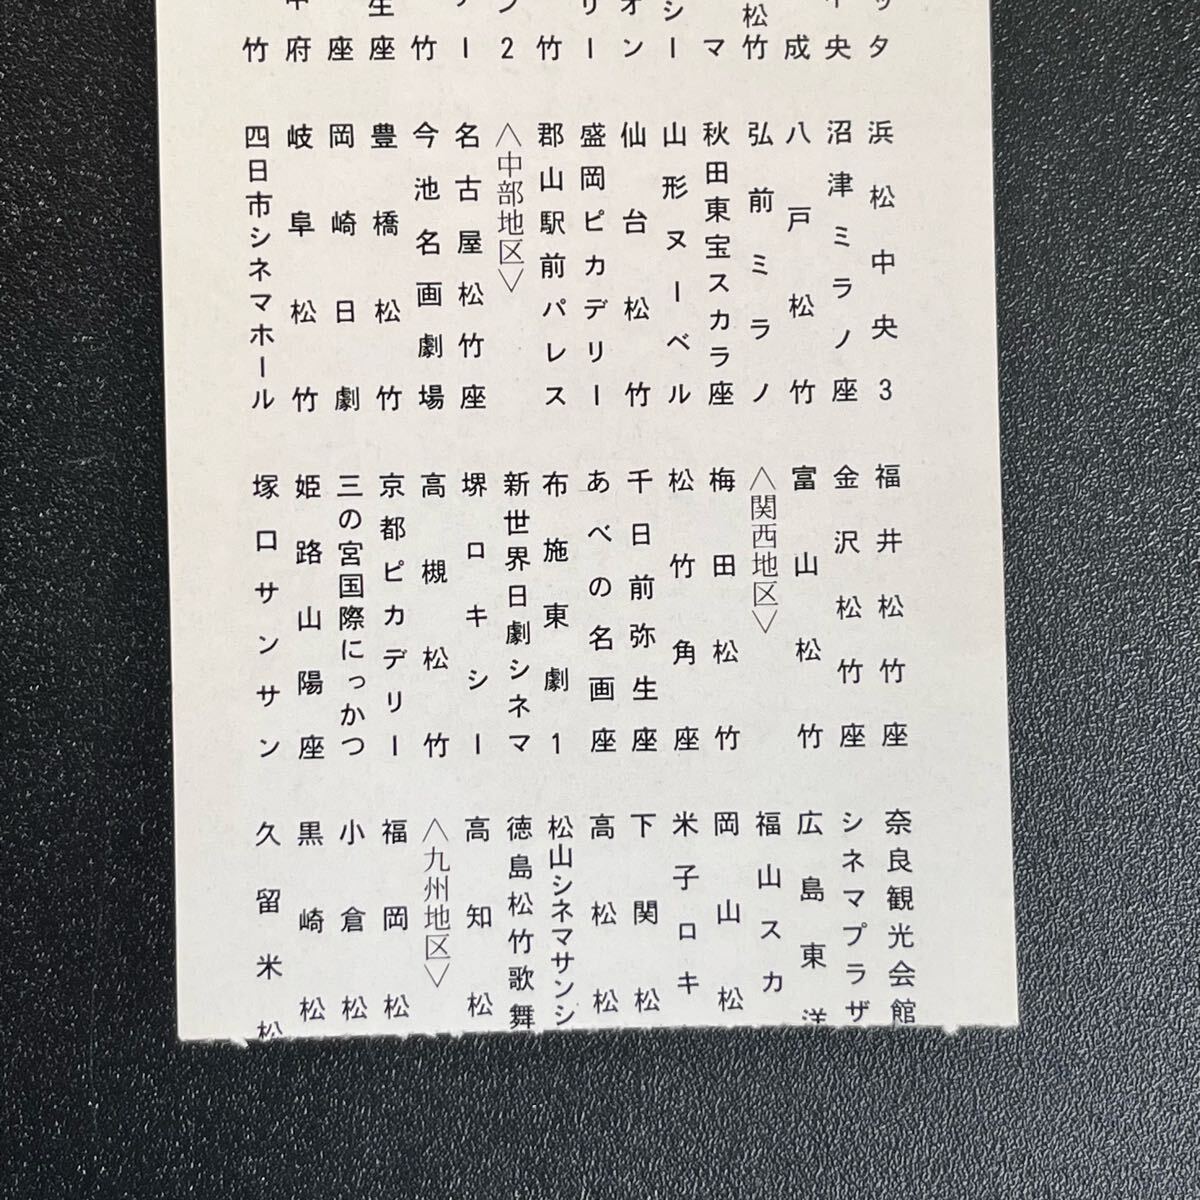 ッタ
央
成
松竹
マ
シー
オン
リー
竹
2
ー
竹
生座
座
府
竹
浜松中央3
沼津ミラノ座
八戸松竹
弘前ミラノ
秋田東宝スカラ座
山形ヌーベル
仙台松竹
盛岡ピカデリー
郡山駅前パレス
〈中部地区〉
名古屋松竹座
今池名画劇場
豊橋松竹
岡崎日劇
岐阜松竹
四日市シネマホール
福井松竹座
金沢松竹座
富山松竹
〈関西地区〉
梅田松竹
松竹角座
千日前弥生座
あべの名画座
布施東劇1
新世界日劇シネマ
堺ロキシー
高槻松竹
京都ピカデリー
三の宮国際にっかつ
姫路山陽座
塚口サンサン
奈良観光会館
シネマプラザ
広島東洋
福山スカ
岡山松
米子ロキ
下関松
高松松
松山シネマサンシ
徳島松竹歌舞
高知松
〈九州地区〉
福岡松
小倉松
黒崎松
久留米松